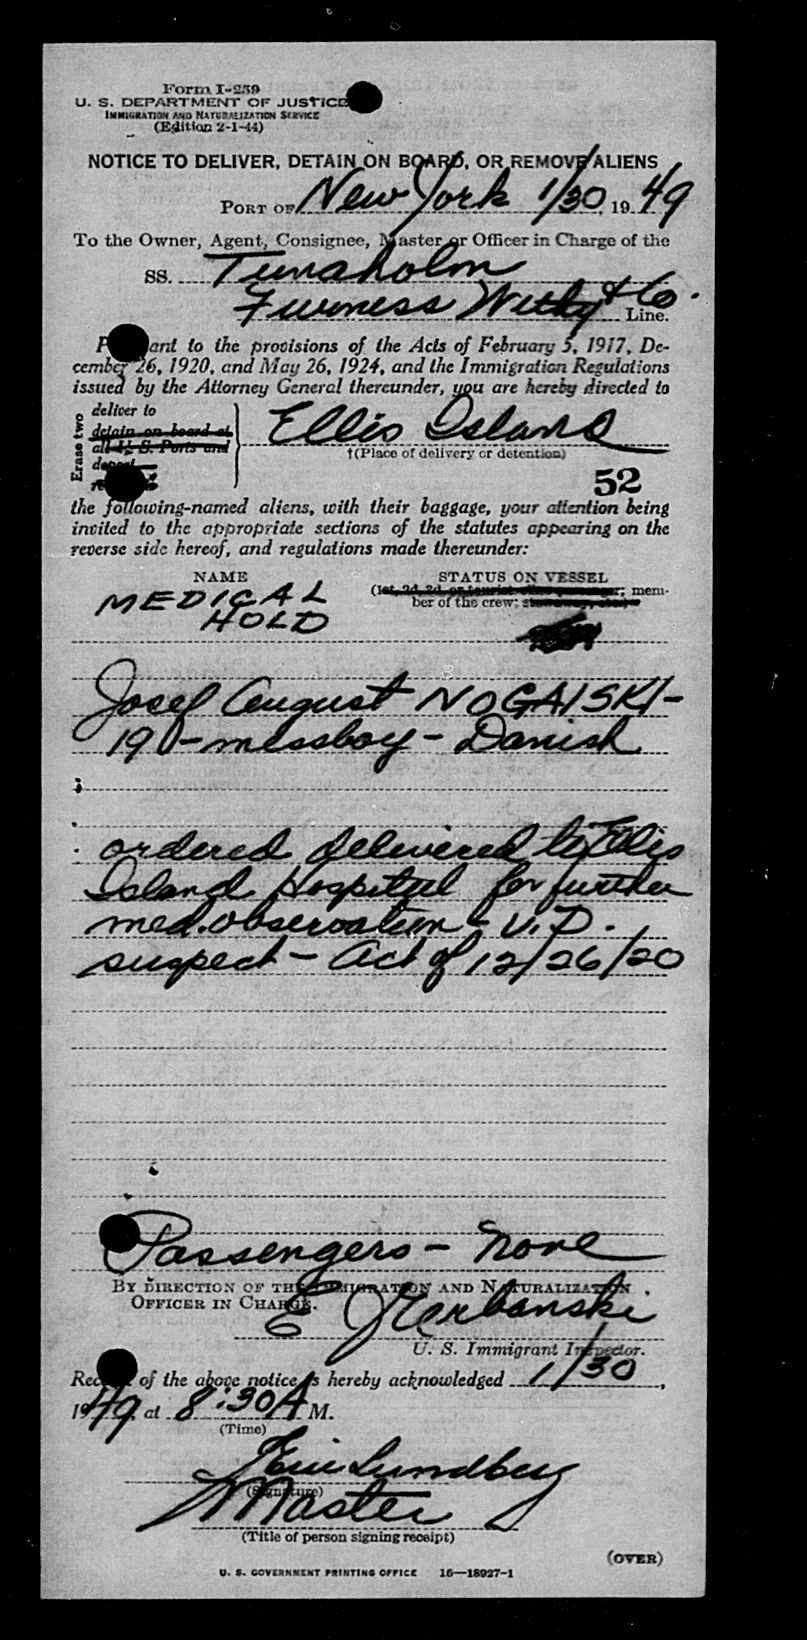 Form I-259
U. S. DEPARTMENT OF JUSTICE
IMMIGRATION AND NATURALIZATION SERVICE
(Edition 2-1-44)
NOTICE TO DELIVER, DETAIN ON BOARD, OR REMOVE ALIENS
PORT OF New York 1/30, 1949
To the Owner, Agent, Consignee, Master or Officer in Charge of the
SS. Tunaholm
Furness Withy & Co. Line.
ant to the provisions of the Acts of February 5, 1917, De-
cember 26, 1920, and May 26, 1924, and the Immigration Regulations
issued by the Attorney General thereunder, you are hereby directed to
Erase two
deliver to
detain on board at
all U. S. Ports and
deport
Ellis Island
†(Place of delivery or detention)
52
the following-named aliens, with their baggage, your attention being
invited to the appropriate sections of the statutes appearing on the
reverse side hereof, and regulations made thereunder:
NAME STATUS ON VESSEL
(1st, 2d, 3d, or tourist class passenger; mem-
ber of the crew;
MEDICAL
HOLD
Josef August NOGAISKI-
19 - messboy - Danish
ordered delivered to Ellis
Island Hospital for further
med. observation - V.D.
suspect - Act of 12/26/20
Passengers - none
BY DIRECTION OF THE IMMIGRATION AND NATURALIZATION
OFFICER IN CHARGE.
E
U. S. Immigrant Inspector.
of the above notice is hereby acknowledged 1/30,
1949, at 8:30 A M.
(Time)
Eric Lundberg
(Signature)
Master
(Title of person signing receipt)
(OVER)
U. S. GOVERNMENT PRINTING OFFICE 16—18927-1